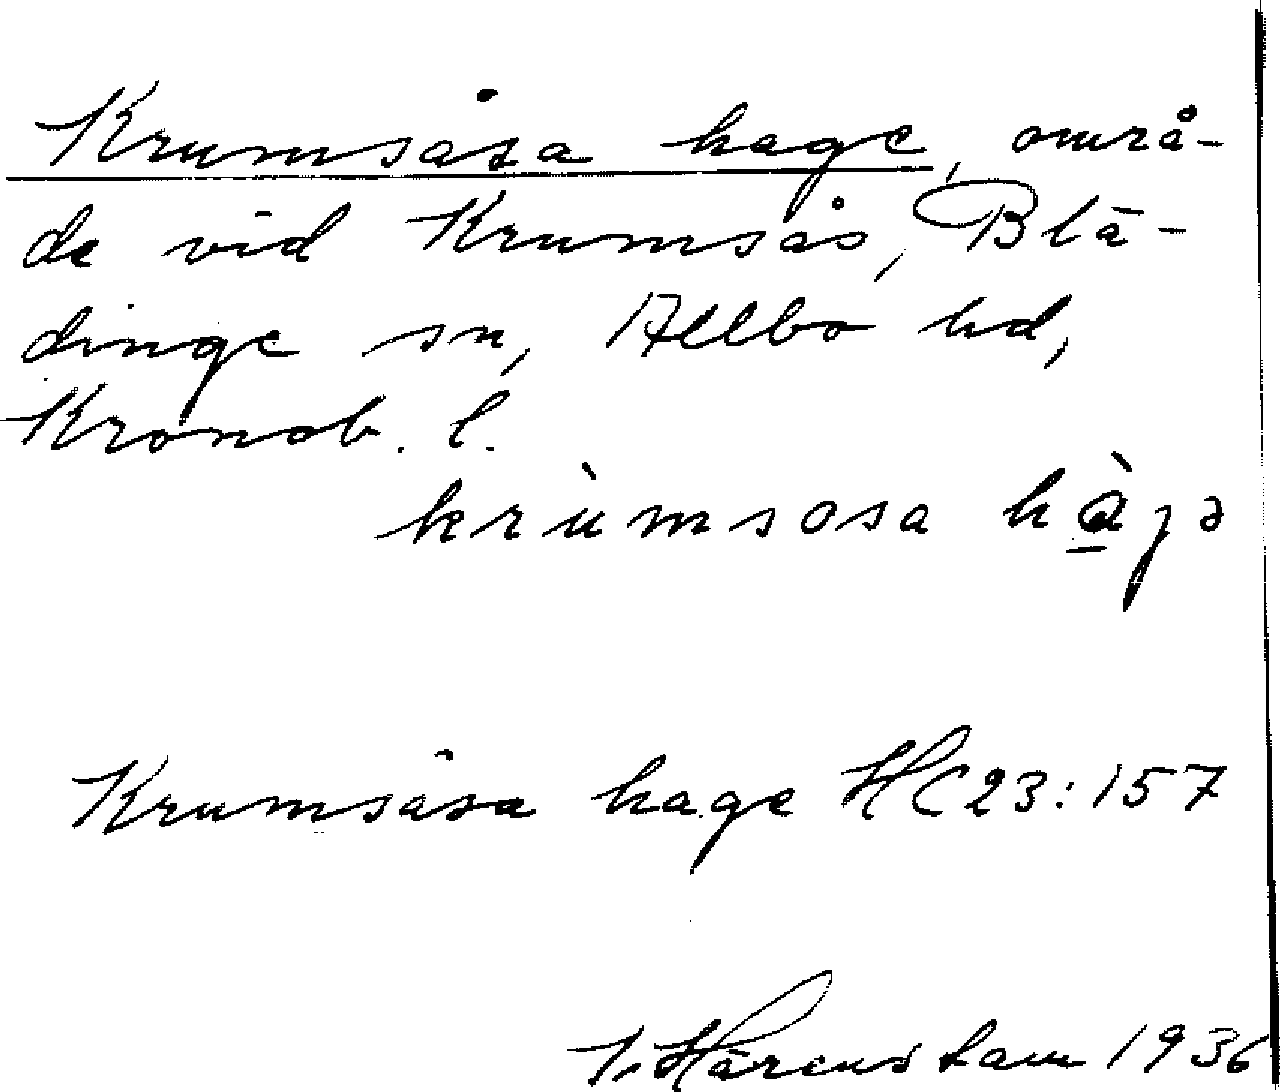 Krumsåsa hage, områ-
de vid Krumsås, Blä-
dinge sn, Allbo hd,
Kronob. l.
krùmsosa hàgə
Krumsåsa hage HC23:157
J. Härenstam 1936